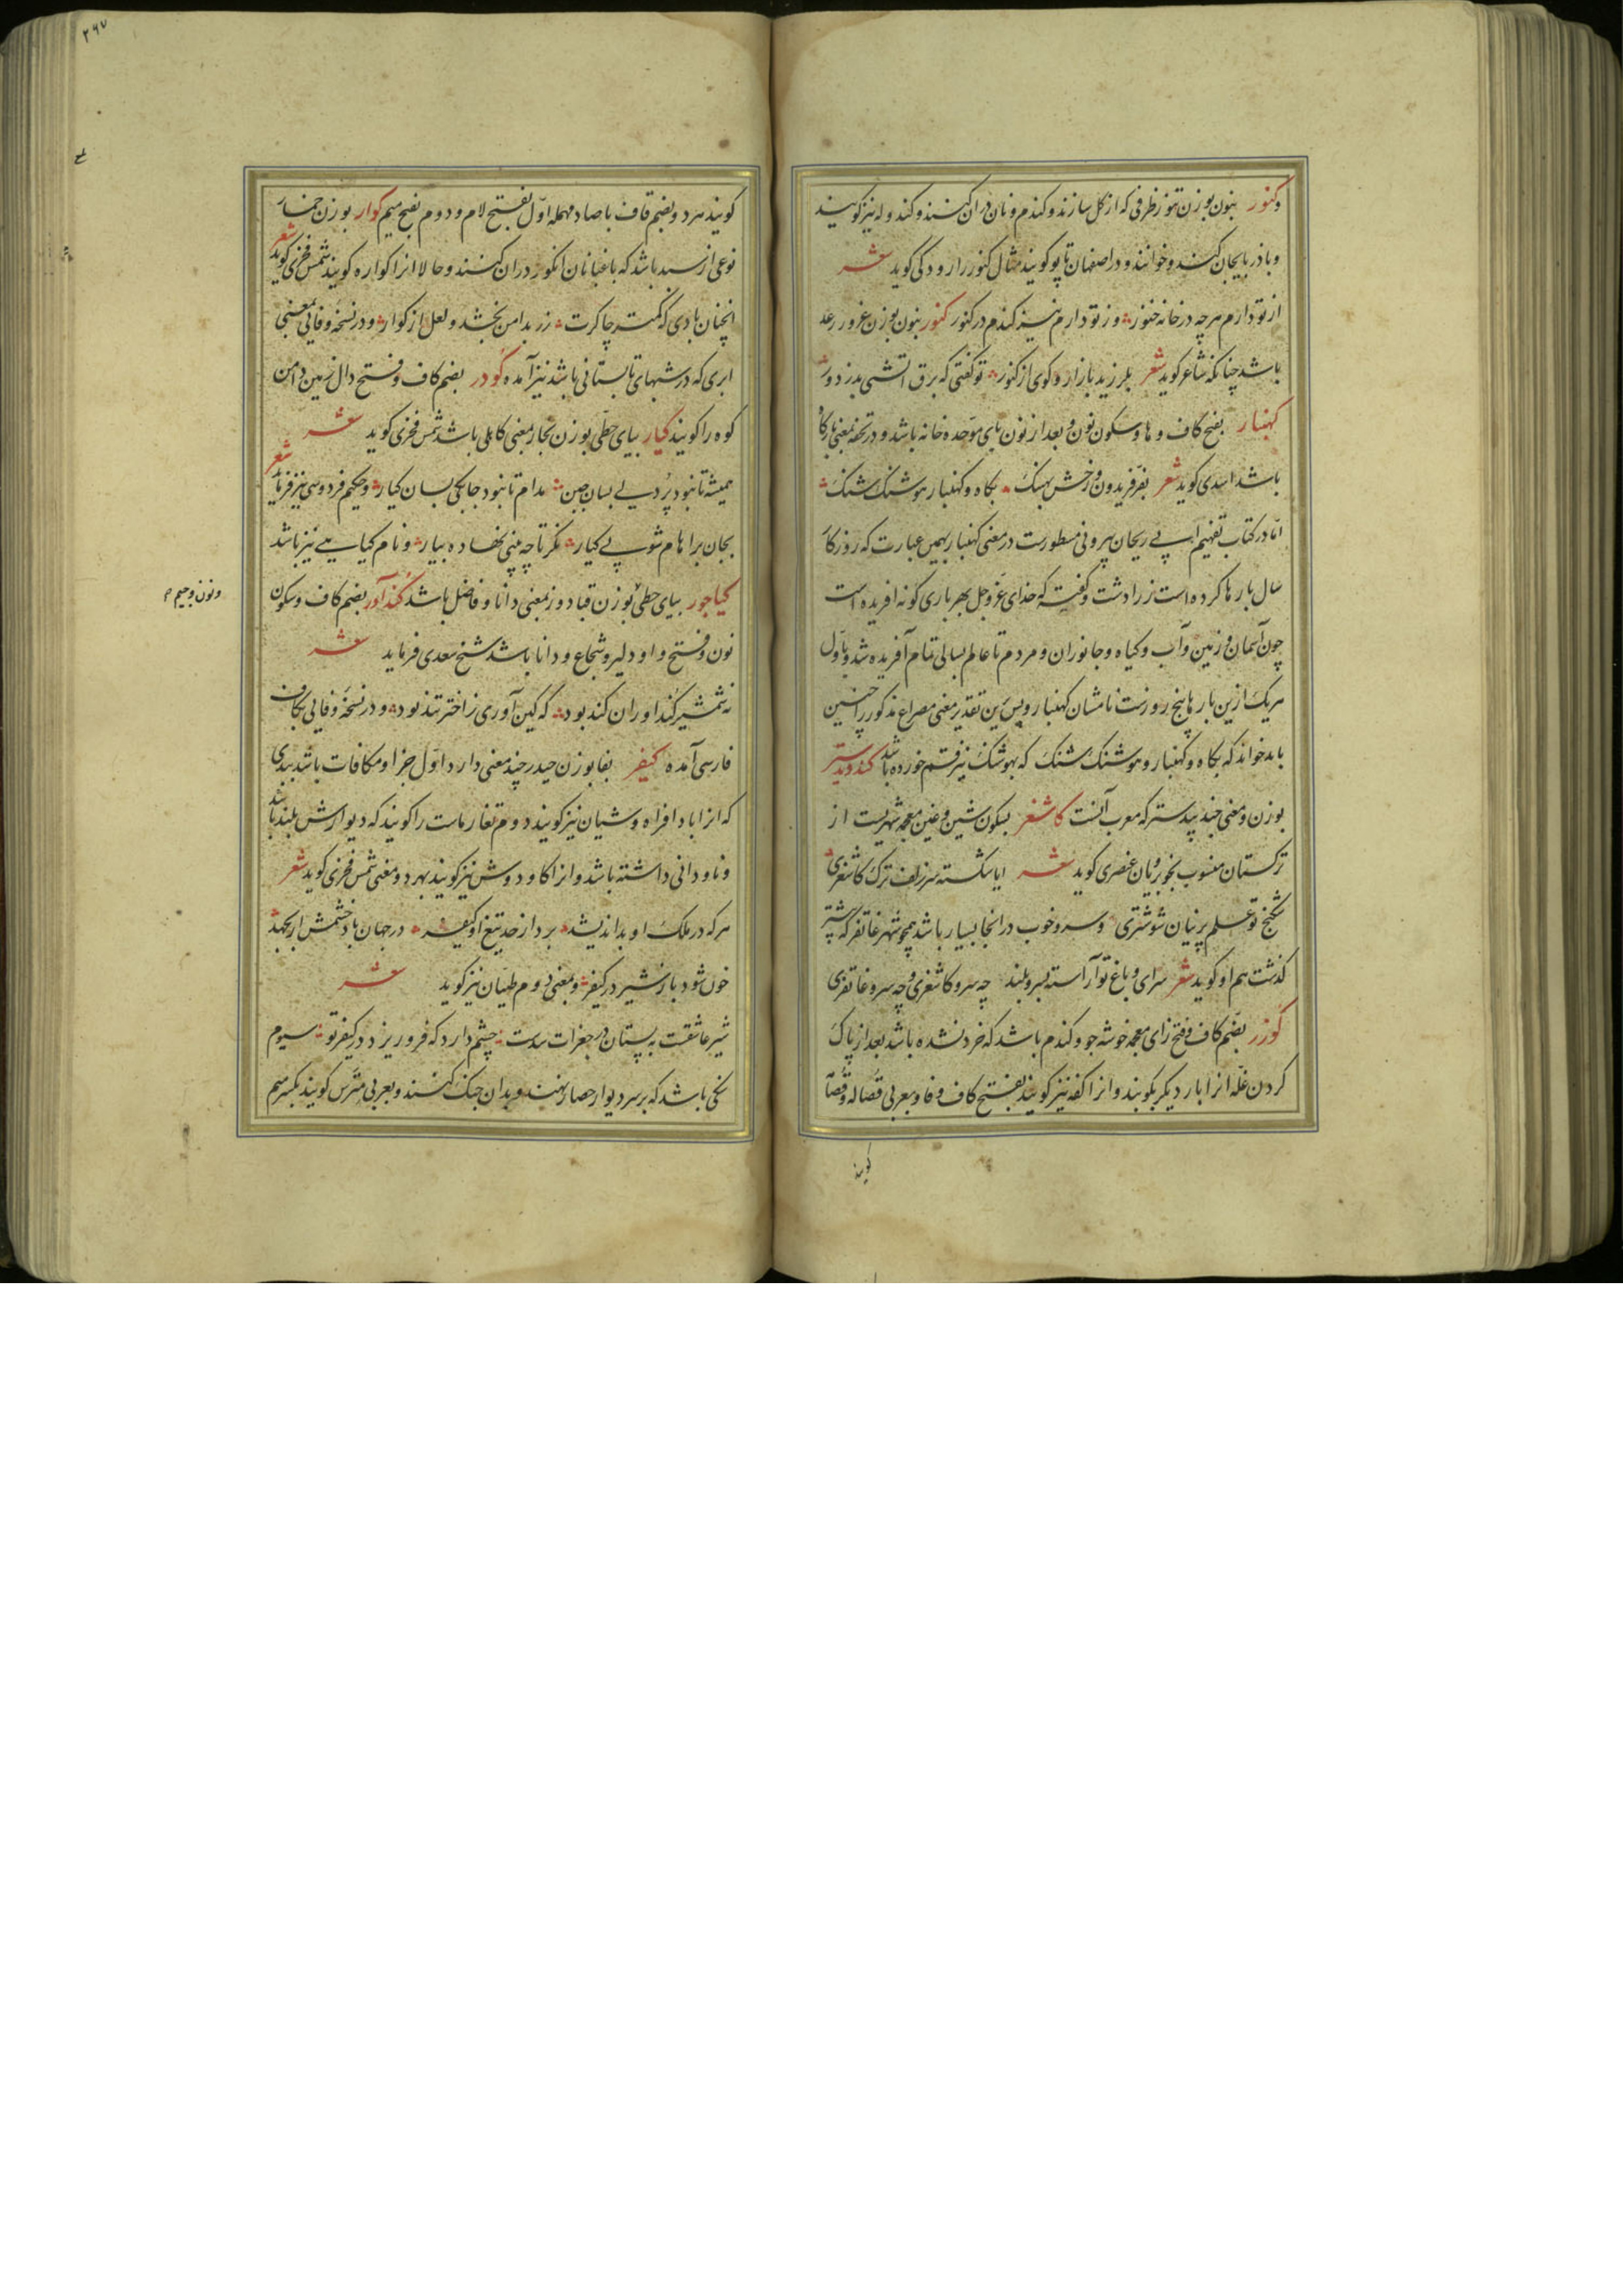 وکنور بنون بوزن تنور ظرفی که از کل سازند و کندم و نان دران کنند و کندوله نیز کویند
و باذربایجان کندو خوانند و در اصفهان تاپو کویند مثال کنور را رودکی کوید شعر
از تو دارم هرچه در خانه خنور وز تو دارم نیز کندم در کنور کنور بنون بوزن غرور رعد
باشد چنانکه شاعر کوید شعر بلرزید بازار و کوی از کنور تو کفتی که برق اتشی بدزدور
کهنبار بفتح کاف و ها و سکون نون و بعد از نون بای موحده خانه باشد و در تحفه بمعنی بارکاه
باشد اسدی کوید شعر بفر فریدون و رخش بهنک بکاه و کهنبار هوشنک شنک
اما در کتاب تفهیم ابی ریحان بیرونی مسطورست در معنی کهنبار بهمین عبارت که روزکار
سال بارها کرده است زرادشت و کفته که خدای عز و جل بهر باری کونه افریده است
چون آسمان و زمین و آب و کیاه و جانوران و مردم تا عالم بسالی تمام آفریده شد و باول
هر یک ازین بارها پنج روزست نامشان کهنبار و پس برین تقدیر معنی مصراع مذکور را چنین
باید خواند که بکاه و کهنبار و هوشنک شنک که بهوشنک نیز قسم خورده باشد کندبیدستر
بوزن و معنی جندبیدستر که معرب آنست کاشغر بسکون شین و غین معجمه شهریست از
ترکستان منسوب بخوبرویان عنصری کوید شعر ایا شکسته سر زلف ترک کاشغری
شکنج تو علم پرنیان شوشتری و سرو خوب در انجا بسیار باشد همچو شهر غاتفر که پیشتر
کذشت هم او کوید شعر سرای و باغ تو آراسته بسرو بلند چه سرو کاشغری و چه سرو غاتفری
کوزر بضم کاف و فتح زای معجمه خوشه جو و کندم باشد که خرد نشده باشد بعد از پاک
کردن غله انرا بار دیکر بکوبند و انرا کفه نیز کویند بفتح کاف و فا و بعربی قصاله و قصا
کویند
کویند سرد و بضم قاف با صاد مهمله اول بفتح لام و دوم بفتح میم کوار بوزن خمار
نوعی از سبد باشد که باغبانان انکور دران کنند و حالا انرا کواره کویند شمس فخری کوید شعر
انچنان بادی که کمتر چاکرت زر بدامن بخشد و لعل از کوار و در نسخه وفائی بمعنی
ابری که در شبهای تابستانی باشد نیز آمده کودر بضم کاف و فتح دال زمین دامن
کوه را کویند کیار بیای حطی بوزن بخار معنی کاهلی باشد شمس فخری کوید شعر
همیشه تا نبود پر دلی بسان جبن مدام تا نبود چابکی بسان کیار و حکیم فردوسی نیز فرماید شعر
بجان براهام شو بی کیار نکر تا چه بینی نهاده بیار و نام کیاهی نیز باشد
کیاجور بیای حطی بوزن قباد وز بمعنی دانا و فاضل باشد کنداور بضم کاف و سکون
نون و فتح واو دلیر و شجاع و دانا باشد شیخ سعدی فرماید شعر
نه شمشیر کنداوران کند بود که کین آوری ز اختر تند بود و در نسخه وفائی بکاف
فارسی آمده کیفر بفا بوزن حیدر چند معنی دارد اول جزا و مکافات باشد ببدی
که انرا باد افراه و شیان نیز کویند دوم تغار ماست را کویند که دیوارش بلند باشد
و ناودانی داشته باشد و انرا کاودوش نیز کویند بهر دو معنی شمس فخری کوید شعر
هر که در ملک او بد اندیشد برد از حد تیغ او کیفر در جهان باد خشمش ار بجهد
خون شود باز شیر در کیفر و بمعنی دوم طیان نیز کوید شعر
شیر عاشقت به پستان در جغرات شدت چشم دارد که فرو ریزد در کیفر تو سیوم
سنکی باشد که بر سر دیوار حصار نهند و بدان جنک کنند و بعربی مترس کویند بکسر میم
و نون و جیم
۲۶۷